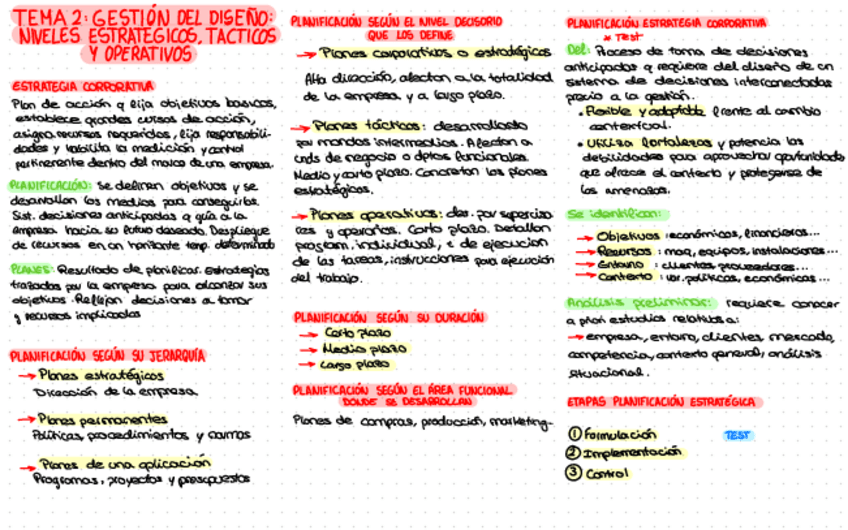 TEMA 2: GESTIÓN DEL DISEÑO:
NIVELES ESTRATEGICOS, TACTICOS
Y OPERATIVOS
ESTRATEGIA CORPORATIVA
Plan de acción q fija objetivos basicos,
establece grandes cursos de acción,
asigna recursos requeridos, fija responsabili-
dades y habilita la medición y control
pertinente dentro del marco de una empresa.
PLANIFICACIÓN: Se definen objetivos y se
desarrollan los medios para conseguirlos.
Sist. decisiones anticipadas q guía a la
empresa hacia su futuro deseado. Despliegue
de recursos en un horizonte temp. determinado
PLANES: Resultado de planificar. Estrategias
trazadas por la empresa para alcanzar sus
objetivos. Reflejan decisiones a tomar
y recursos implicados
PLANIFICACIÓN SEGÚN SU JERARQUÍA
→ Planes estratégicos
Dirección de la empresa
→ Planes permanentes
Políticas, procedimientos y normas
→ Planes de una aplicación
Programas, proyectos y presupuestos
PLANIFICACIÓN SEGÚN EL NIVEL DECISORIO
QUE LOS DEFINE
→ Planes corporativos o estratégicos
Alta dirección, afectan a la totalidad
de la empresa y a largo plazo.
→ Planes tácticos: desarrollado
por mandos intermedios. Afectan a
unds de negocio o dptos funcionales.
Medio y corto plazo. Concretan los planes
estratégicos.
→ Planes operativos: des. por superviso
res y operarios. Corto plazo. Detallan
program. individual, e de ejecucion
de las tareas, instrucciones para ejecución
del trabajo.
PLANIFICACIÓN SEGÚN SU DURACIÓN
→ Corto plazo
→ Medio plazo
→ Largo plazo
PLANIFICACIÓN SEGÚN EL ÁREA FUNCIONAL
DONDE SE DESARROLLAN
Planes de compras, producción, marketing-
PLANIFICACIÓN ESTRATEGIA CORPORATIVA
* TEST
Def: Proceso de toma de decisiones
anticipadas q requiere del diseño de un
sistema de decisiones interconectadas
previo a la gestión.
• Flexible y adaptable frente al cambio
contextual.
• Utiliza fortalezas y potencia las
debilidades para aprovechar oportunidades
que ofrece el contexto y protegerse de
las amenazas.
Se identifican:
→ Objetivos: económicos, financieros...
→ Recursos: maq, equipos, instalaciones...
→ Entorno: clientes, proveedores...
→ Contexto: var. políticas, económicas...
Análisis preliminar: requiere conocer
a priori estudios relativos a:
→ empresa, entorno, clientes, mercado,
competencia, contexto general, análisis
situacional.
ETAPAS PLANIFICACIÓN ESTRATÉGICA
① Formulación TEST
② Implementación
③ Control